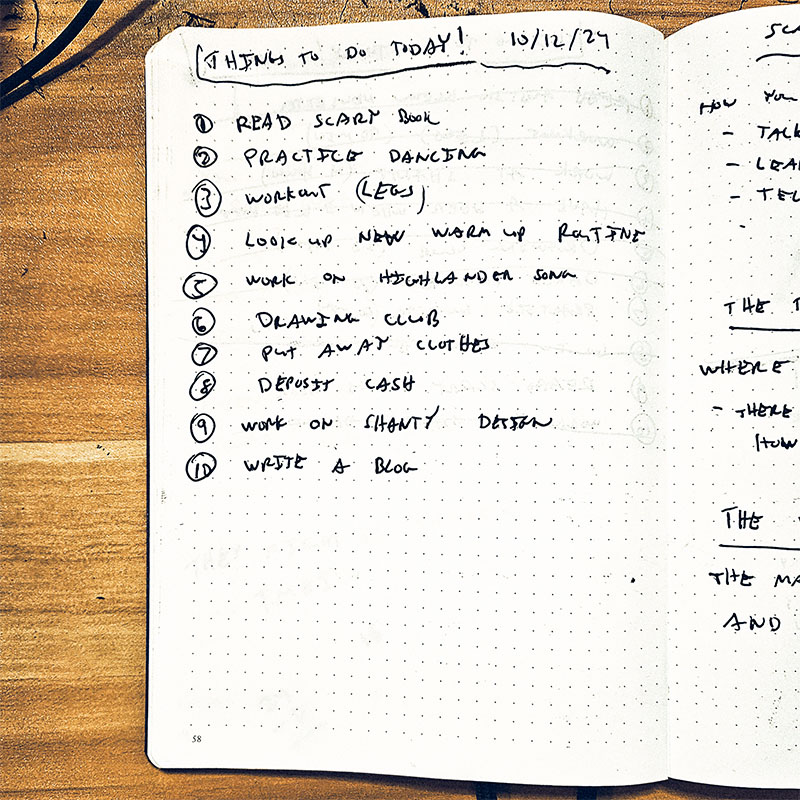 THINGS TO DO TODAY! 10/12/24
1 READ SCARY BOOK
2 PRACTICE DANCING
3 WORKOUT (LEGS)
4 LOOK UP NEW WARM UP ROUTINE
5 WORK ON HIGHLANDER SONG
6 DRAWING CLUB
7 PUT AWAY CLOTHES
8 DEPOSIT CASH
9 WORK ON SHANTY DESIGN
10 WRITE A BLOG
58
HOW YOU
- TALK
-
- TEL
-
THE
WHERE
- THERE
HOW
THE
THE MA
AND